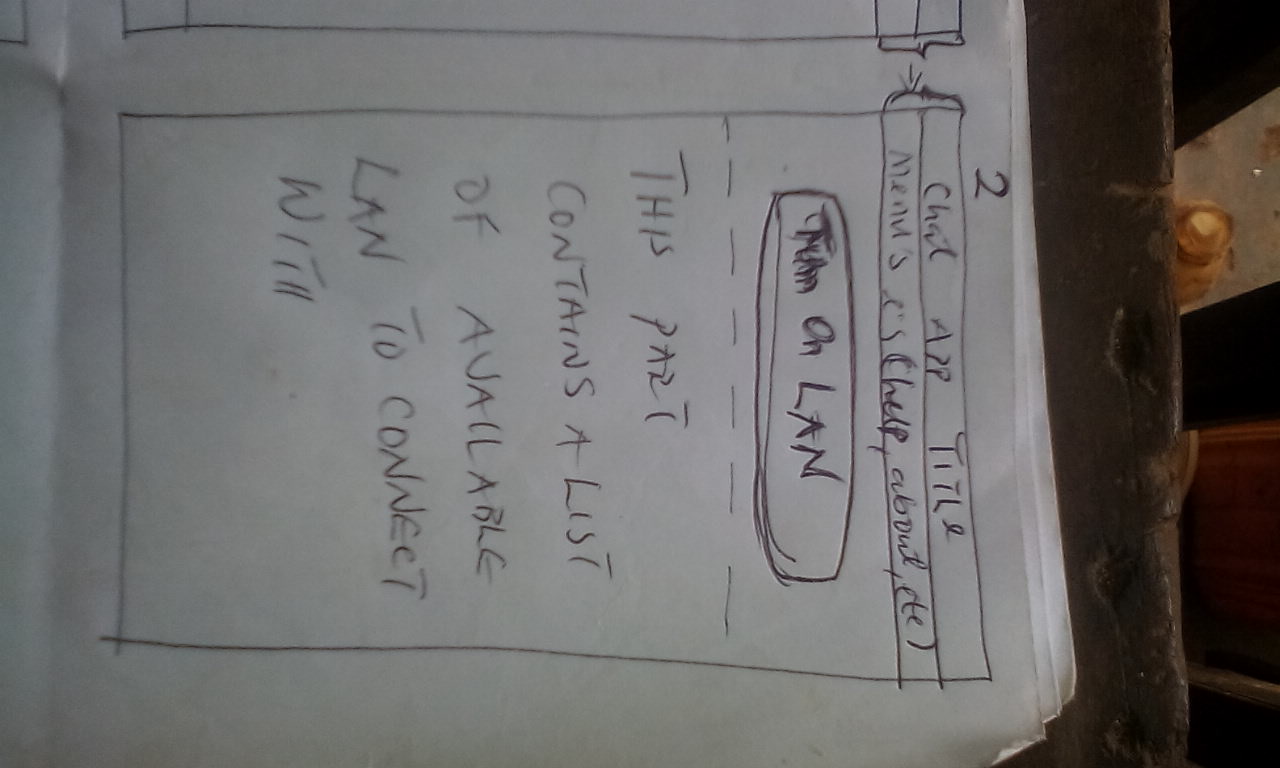 2
Chat APP TiTLe
Menu's (help, about, etc)
Turn On LAN
THIS PART
CONTAINS A LIST
OF AVAILABLE
LAN TO CONNECT
WITH